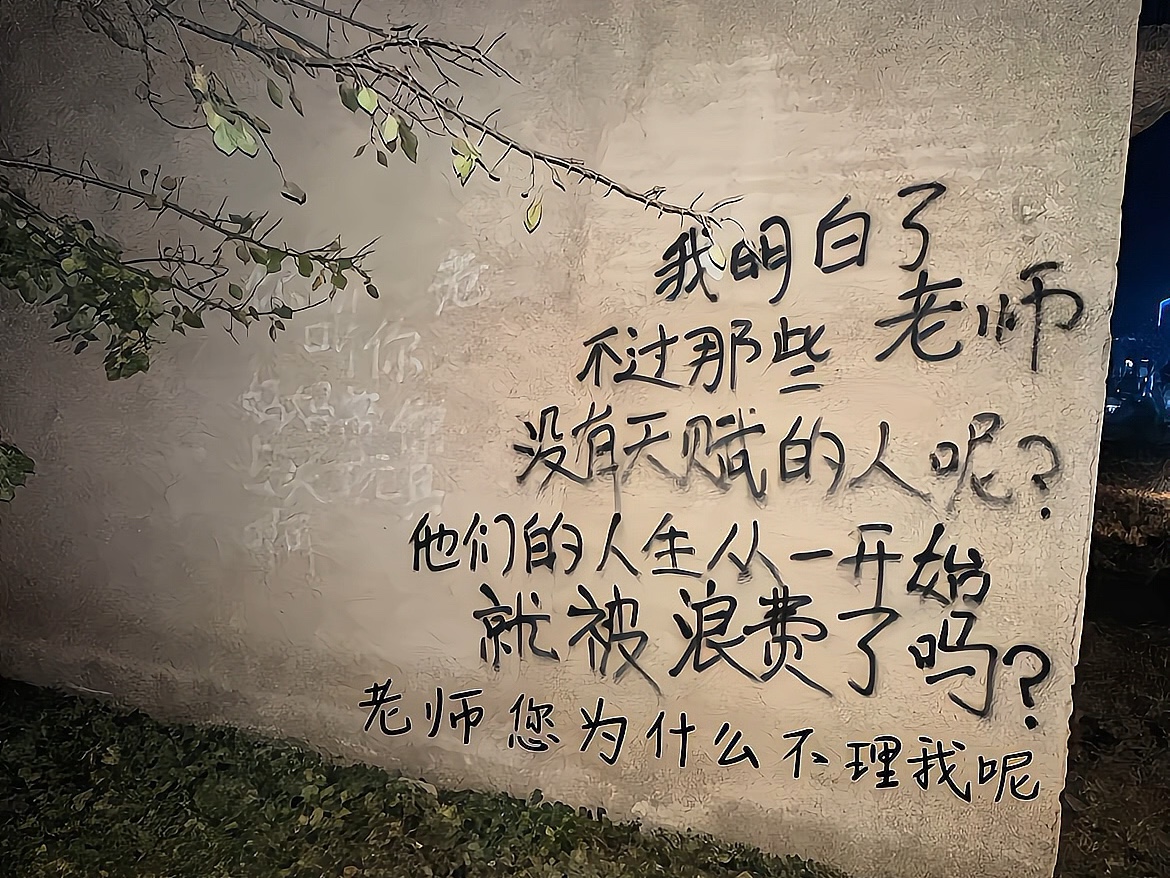 我明白了
老师
不过那些
没有天赋的人呢?
他们的人生从一开始
就被浪费了吗?
老师您为什么不理我呢
叫你